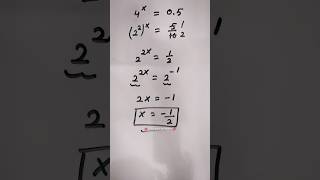 4^x = 0.5
(2^2)^x = 5/10 1/2
2^2x = 1/2
2^2x = 2^-1
2x = -1
x = -1/2